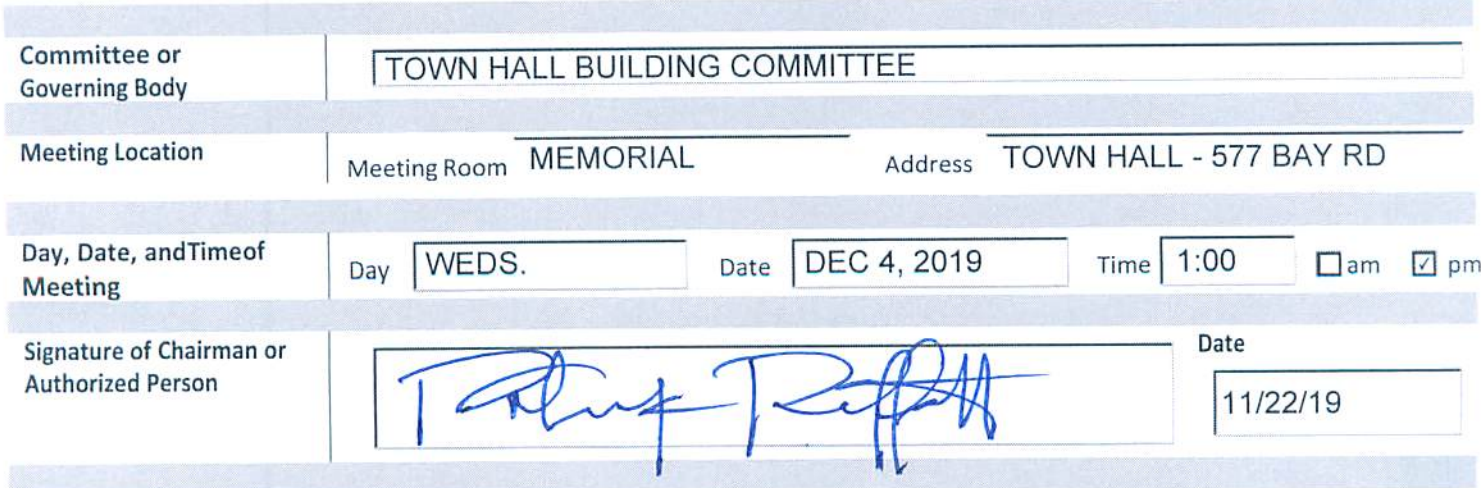 Committee or
Governing Body
TOWN HALL BUILDING COMMITTEE
Meeting Location
Meeting Room MEMORIAL Address TOWN HALL - 577 BAY RD
Day, Date, andTimeof
Meeting
Day WEDS. Date DEC 4, 2019 Time 1:00 am ✓ pm
Signature of Chairman or
Authorized Person
Date
11/22/19